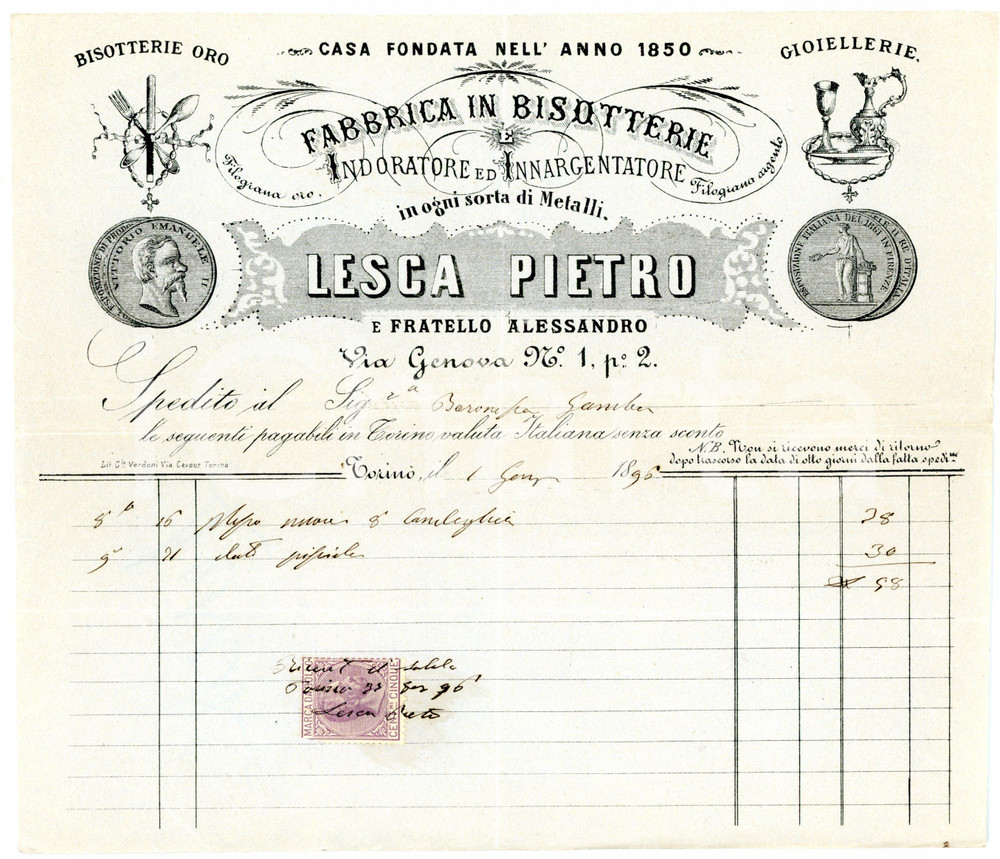 BISOTTERIE ORO
CASA FONDATA NELL' ANNO 1850
GIOIELLERIE.
FABBRICA IN BISOTTERIE
E
INDORATORE ED INNARGENTATORE
Filograna oro.
Filograno argento
in ogni sorta di Metalli.
ESPOSIZIONE DI PRODOT
VITTORIO EMANUELE II
ESPOSIZIONE ITALIANA DEL 1861 IN FIRENZE
ELE II RE D'ITALIA
LESCA PIETRO
E FRATELLO ALESSANDRO
Via Genova Nº 1, pº 2.
Spedito al Sig.ra Baronessa Gamba
le seguenti pagabili in Torino, valuta Italiana senza sconto
N.B. Non si ricevono merci di ritorno
dopo trascorso la data di otto giorni dalla fatta spediz.ne
Lit. C.lo Verdoni Via Cavour Torino
Torino, il 1 1896
16 8 28
21 30
58
MARCA DA BOLLO
CENT.MI CINQUE
Torino 96
Lesca Pietro